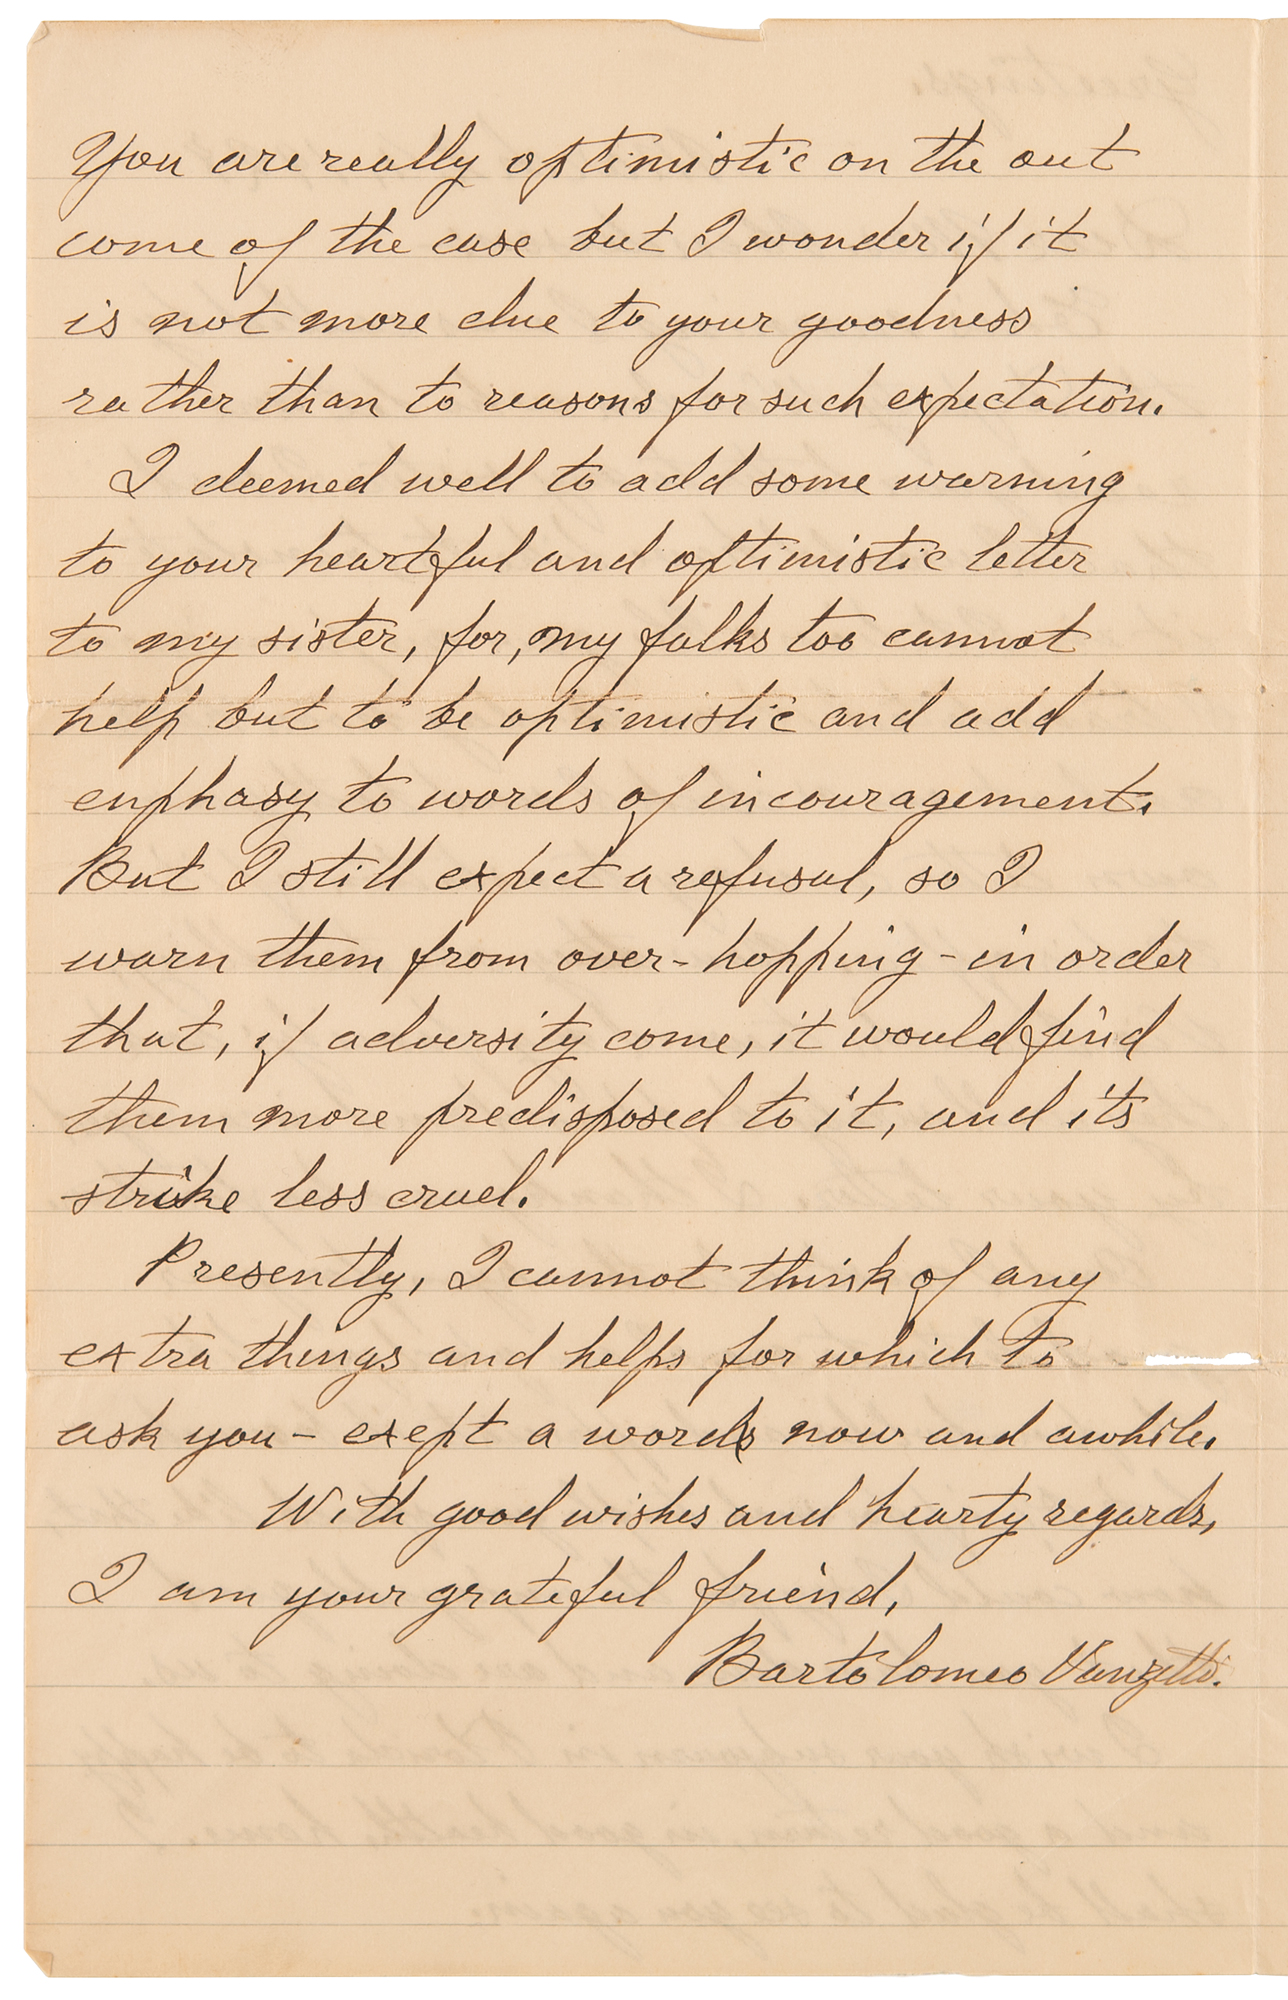 You are really optimistic on the out
come of the case but I wonder if it
is not more due to your goodness
rather than to reasons for such expectation.
I deemed well to add some warning
to your heartful and optimistic letter
to my sister, for, my folks too cannot
help but to be optimistic and add
enphasy to words of incouragement.
But I still expect a refusal, so I
warn them from over-hopping - in order
that, if adversity come, it would find
them more predisposed to it, and its
strike less cruel.
Presently, I cannot think of any
extra things and helps for which to
ask you - exept a words now and awhile.
With good wishes and hearty regards,
I am your grateful friend,
Bartolomeo Vanzetti.